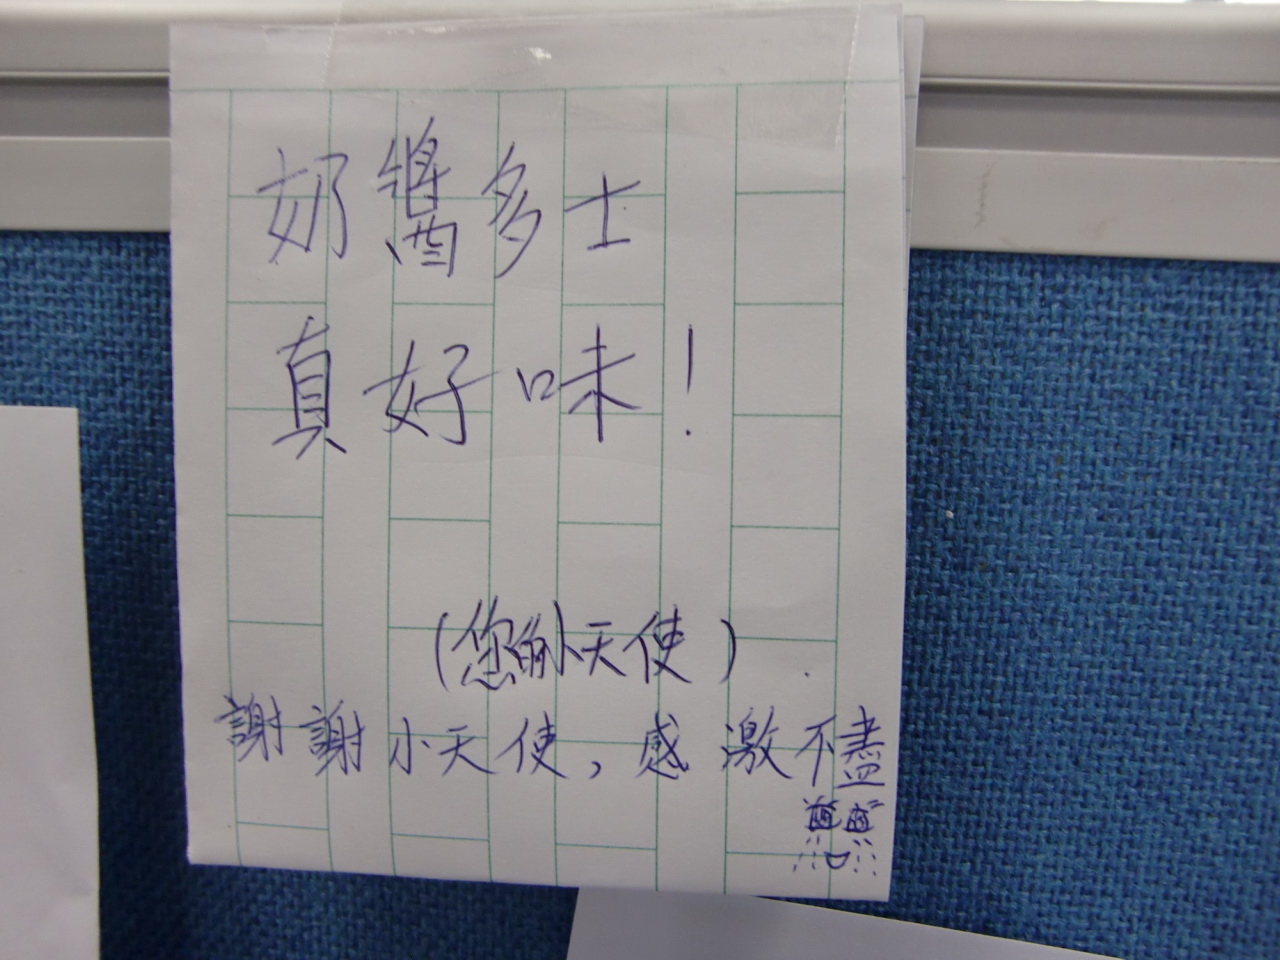 奶醬多士
真好味!
(您的小天使)
謝謝小天使,感激不盡